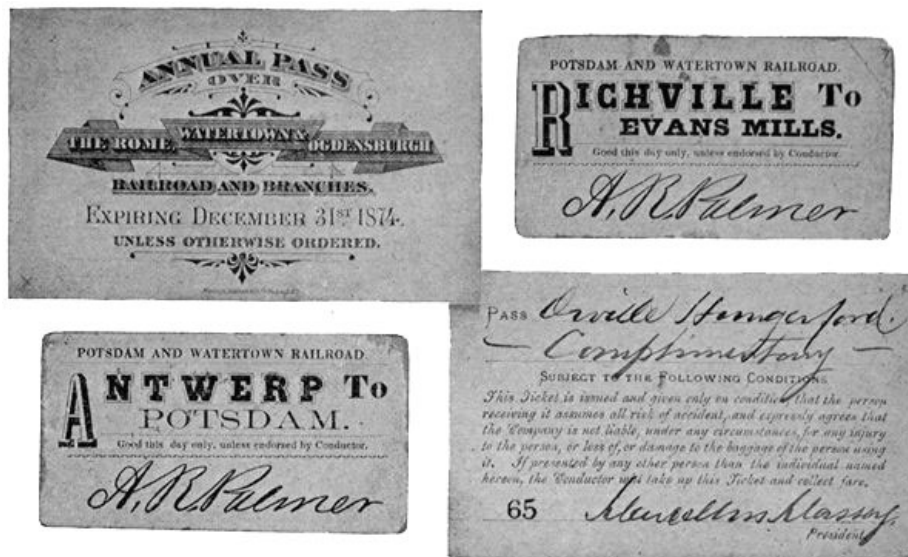 ANNUAL PASS
OVER
THE ROME, WATERTOWN & OGDENSBURGH
RAILROAD AND BRANCHES.
EXPIRING DECEMBER 31ST 1874.
UNLESS OTHERWISE ORDERED.
POTSDAM AND WATERTOWN RAILROAD.
RICHVILLE TO
EVANS MILLS.
Good this day only, unless endorsed by Conductor.
A. R. Palmer
POTSDAM AND WATERTOWN RAILROAD.
ANTWERP TO
POTSDAM.
Good this day only, unless endorsed by Conductor.
A. R. Palmer
PASS Orville Hungerford.
Complimentary
SUBJECT TO THE FOLLOWING CONDITIONS
This Ticket is issued and given only on condition that the person
receiving it assumes all risk of accident, and expressly agrees that
the Company is not liable, under any circumstances, for any injury
to the person, or loss of, or damage to the baggage of the person using
it. If presented by any other person than the individual named
hereon, the Conductor will take up this Ticket and collect fare.
65
President.